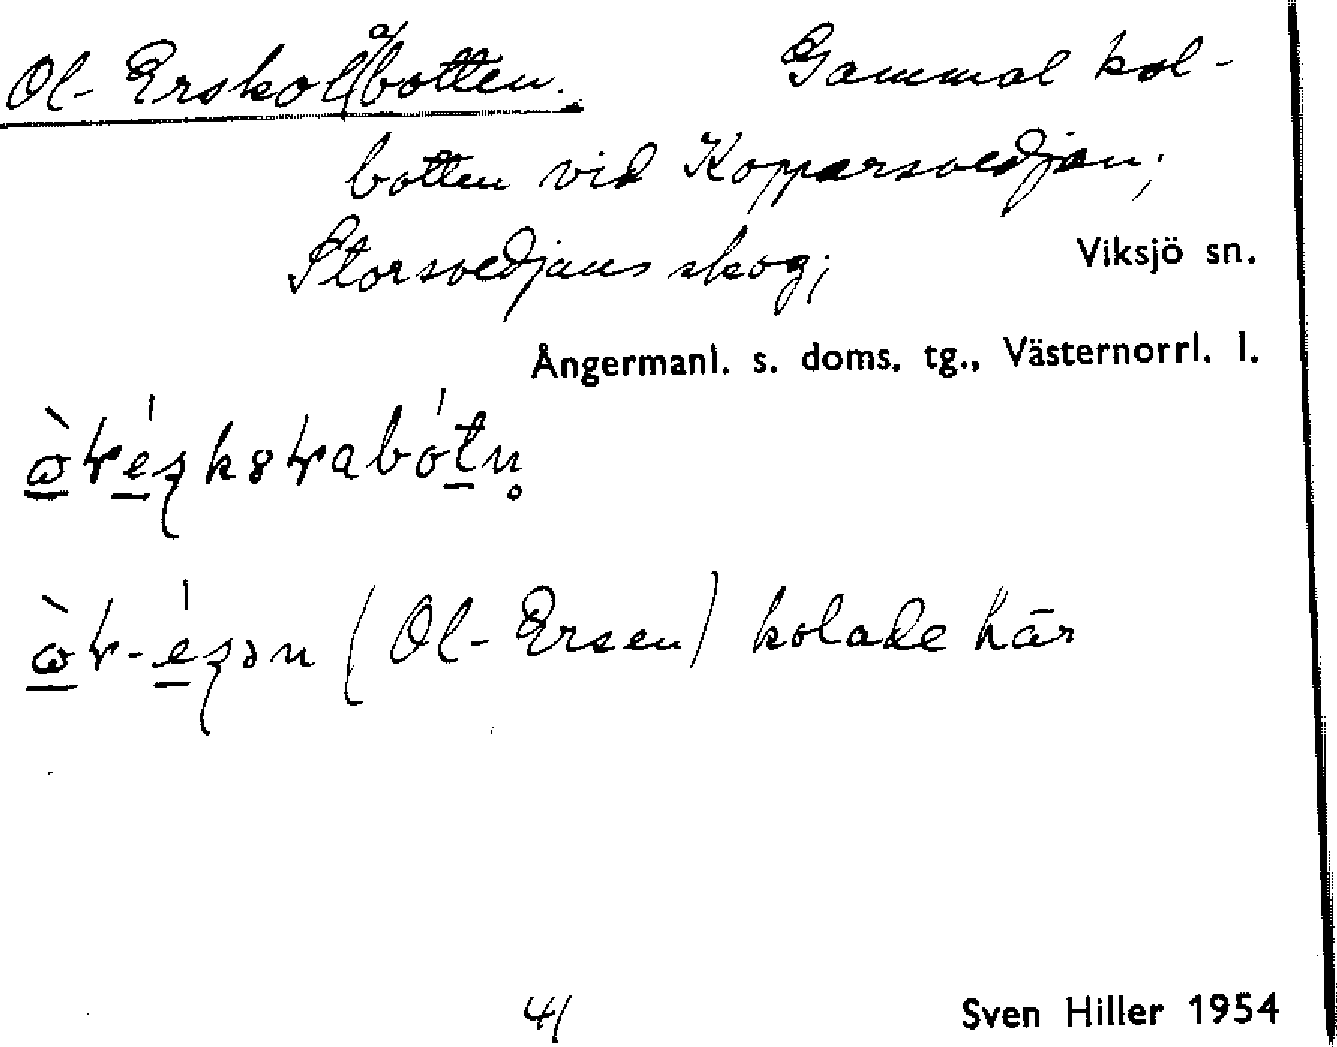 Ol-Erskol(a)botten. Gammal kol-
botten vid Kopparsvedjan;
Storsvedjans skog; Viksjö sn.
Ångermanl. s. doms. tg., Västernorrl. l.
(Ol-Ersen) kolade här
41 Sven Hiller 1954